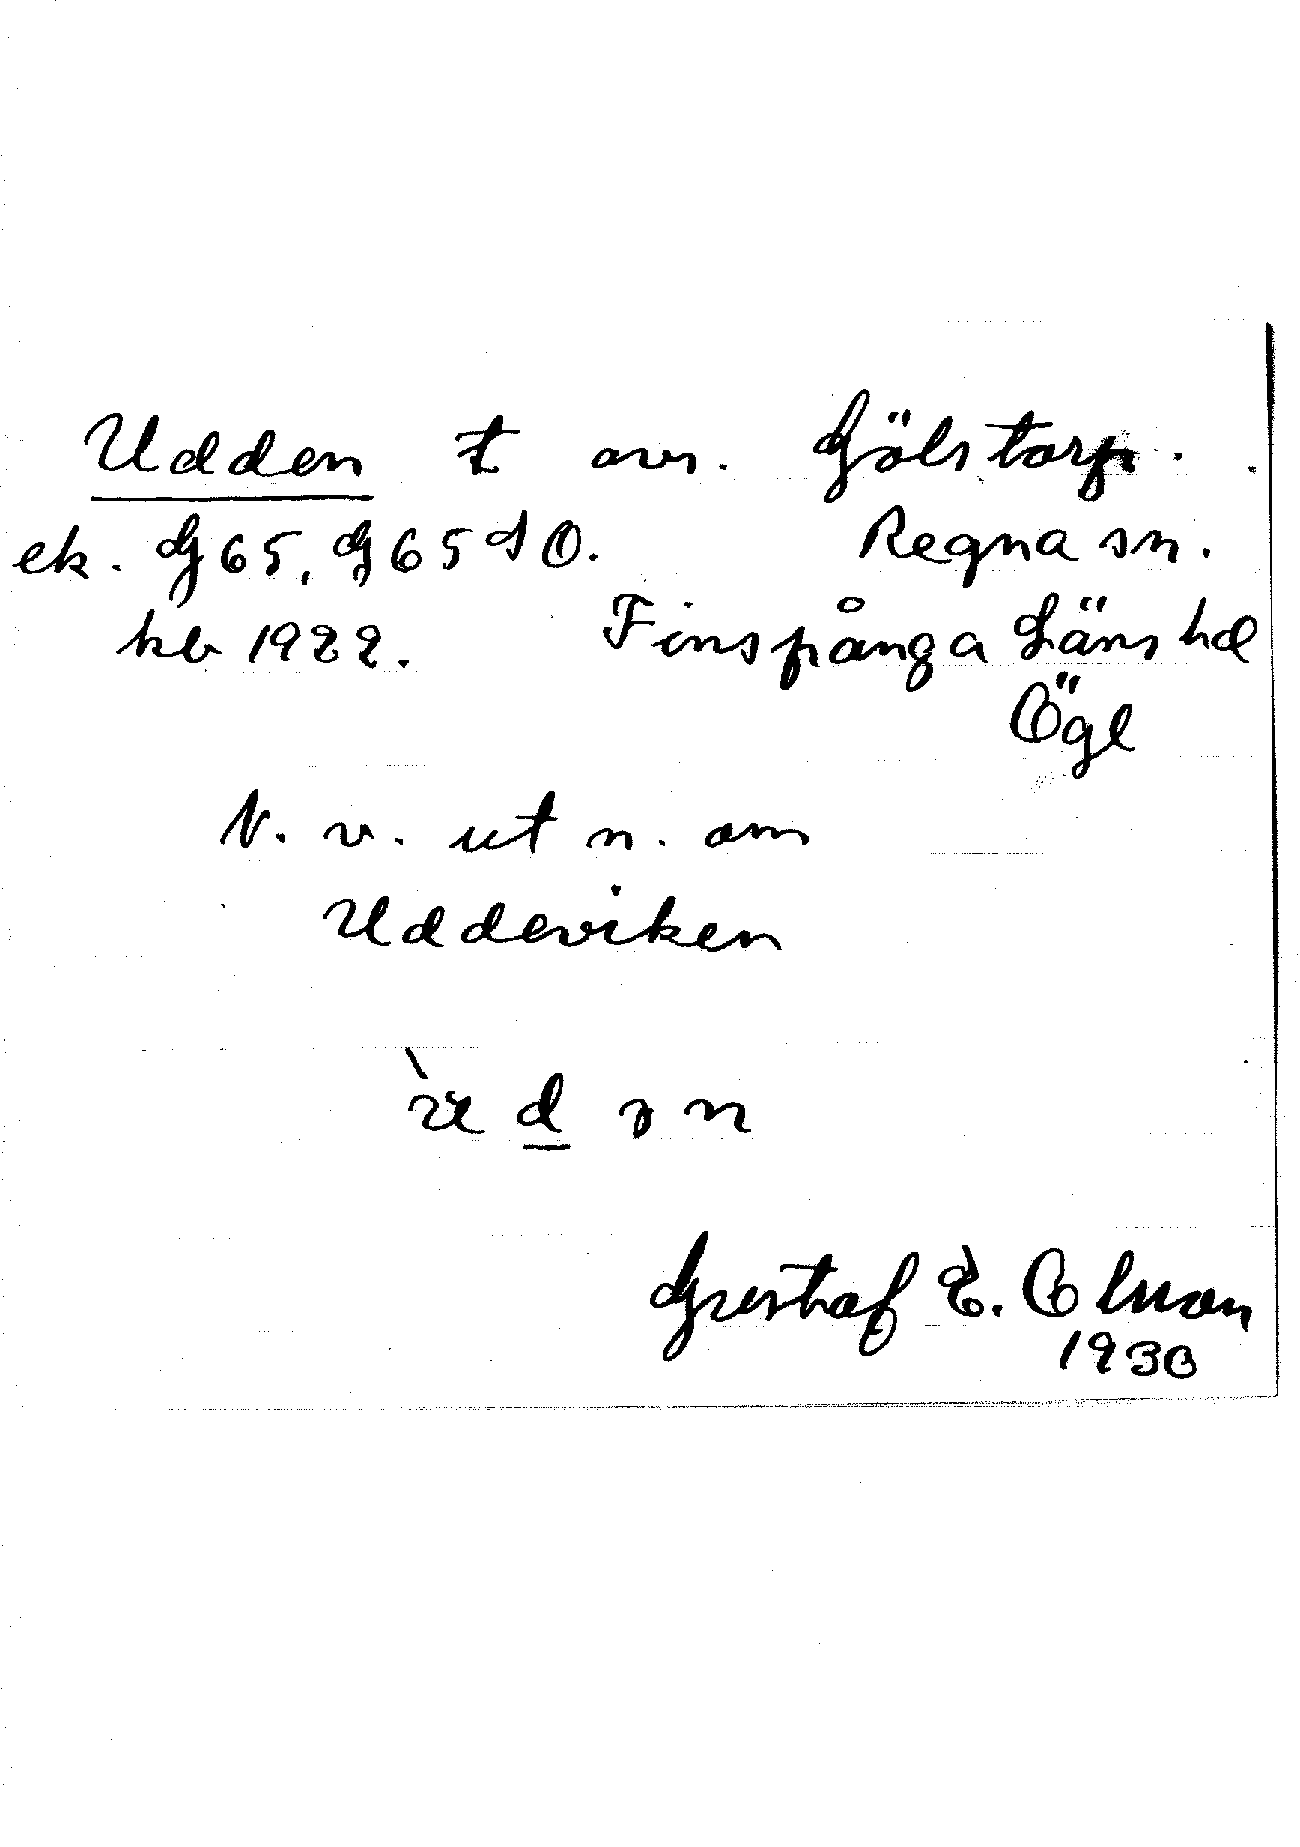 Udden t avs. Gölstorp.
ek. G65, G65SO. Regna sn.
kb 1922. Finspånga Läns hd
Ögl
N. v. ut n. om
Uddeviken
ùdən
Gustaf E.
1930